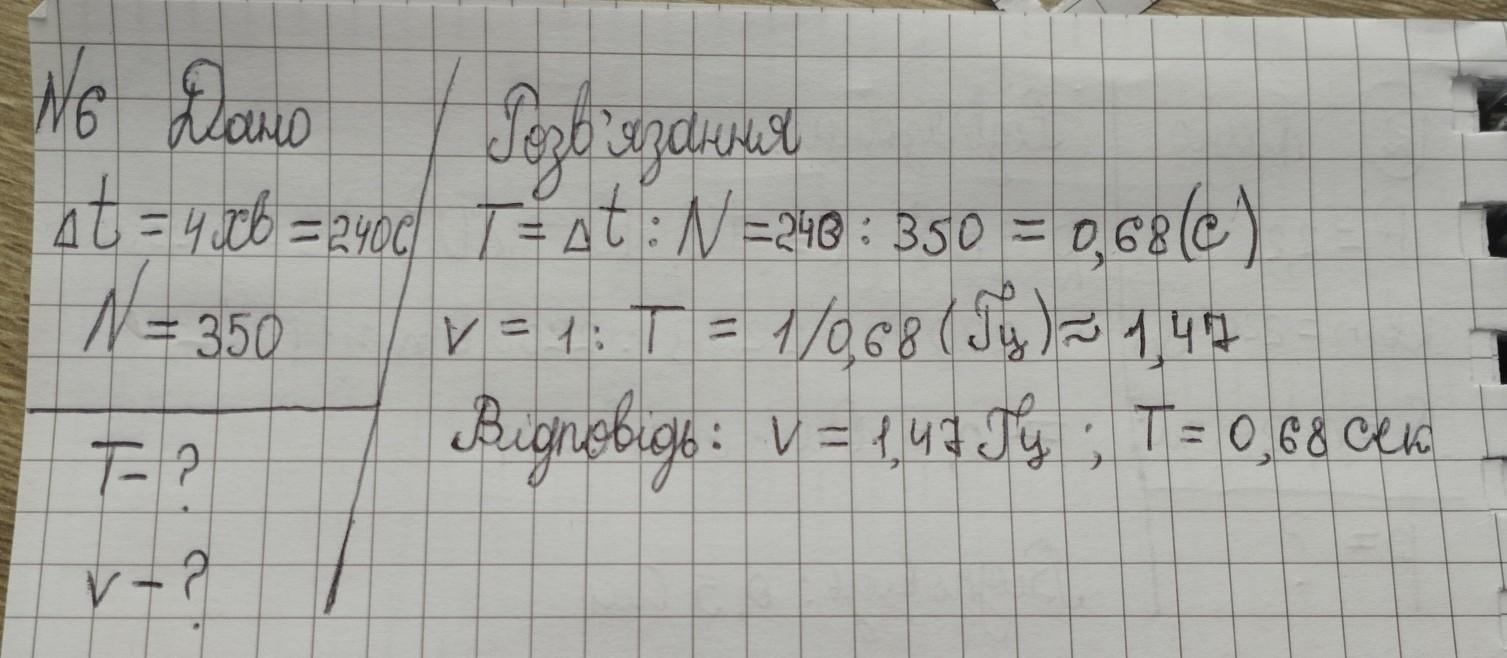 №6 Дано
Δt = 4 хв = 240с
N = 350
T - ?
ν - ?
Розв'язання
T = Δt : N = 240 : 350 = 0,68 (с)
ν = 1 : T = 1/0,68 (Гц) ≈ 1,47
Відповідь: ν = 1,47 Гц ; T = 0,68 сек